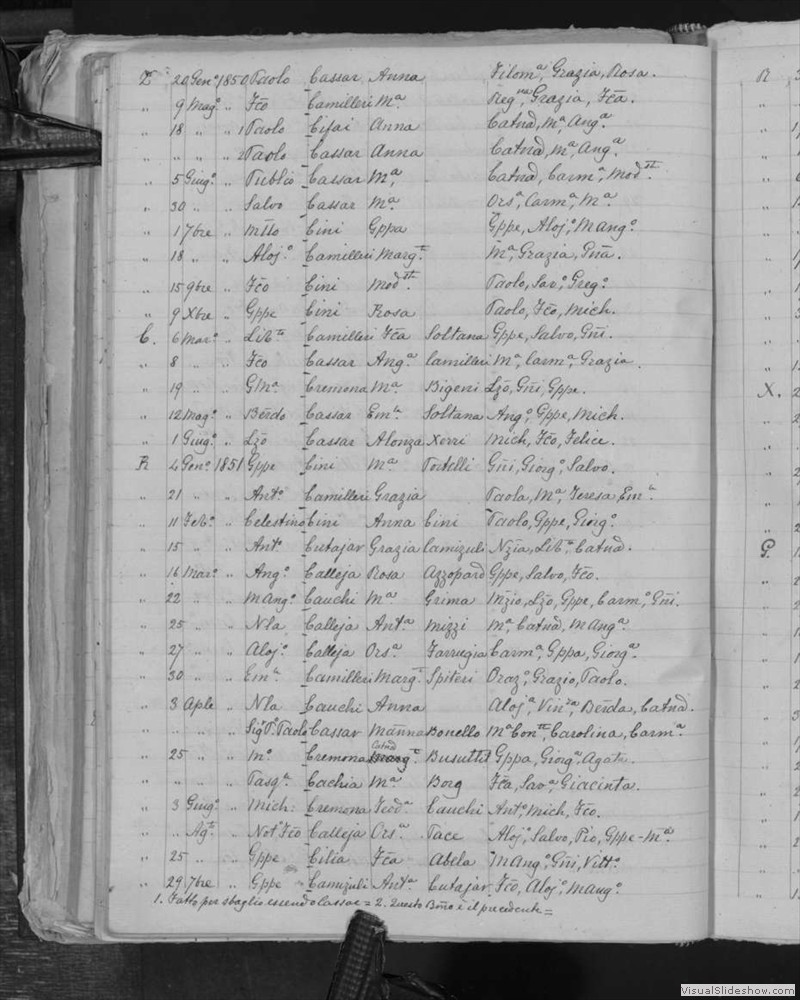 Z 20 Gen.° 1850 Paolo Cassar Anna Filom.ª, Grazia, Rosa.
„ 9 Mag.° „ Fco Camilleri M.ª Reg.na, Grazia, Fca.
„ 18 „ „ 1 Paolo Cifai Anna Catnd, M.ª, Ang.ª
„ „ „ 2 Paolo Cassar Anna Catnd, M.ª, Ang.ª
„ 5 Giug.° „ Publio Cassar M.ª Catnd, Carm.ª, Mod.tt
„ 30 „ „ Salvo Cassar M.ª Ors.ª, Carm.ª, M.ª
„ 1 7bre „ Cini Gppa Gppe, Aloj.°, M Ang.°
„ 18 „ „ Aloj.° Camilleri Marg.ta M.ª, Grazia, Gña.
„ 15 9bre „ Fco Cini Mod.tt Paolo, Sav.°, Greg.°
„ 9 Xbre „ Gppe Cini Rosa Paolo, Fco, Mich.
C. 6 Mar.° „ Lib.to Camilleri Fca Soltana Gppe, Salvo, Gñi.
„ 8 „ „ Fco Cassar Ang.ª Camilleri M.ª, Carm.ª, Grazia.
„ 19 „ „ GMª Cremona M.ª Bigeni Lzo, Gñi, Gppe.
„ 12 Mag.° „ Berdo Cassar Em.la Soltana Ang.°, Gppe, Mich.
„ 1 Giug.° „ Lzo Cassar Alonza Xerri Mich, Fco, Felice.
R 4 Gen.° 1851 Gppe Cini M.ª Portelli Gñi, Giorg.°, Salvo.
„ 21 „ „ Ant.° Camilleri Grazia Paola, M.ª, Teresa, Em.la
„ 11 Feb.° „ Celestino Cini Anna Cini Paolo, Gppe, Giorg.°
„ 15 „ „ Ant.° Cutajar Grazia Camizuli Nzia, Lib.ta, Catnd.
„ 16 Mar.° „ Ang.° Calleja Rosa Azzopard Gppe, Salvo, Fco.
„ 22 „ „ M Ang.° Cauchi M.ª Grima Nzio, Lzo, Gppe, Carm.°, Gñi.
„ 25 „ „ Nla Calleja Ant.ª Mizzi M.ª, Catnd, M Ang.ª
„ 27 „ „ Aloj.° Calleja Ors.ª Farrugia Carm.ª, Gppa, Giorg.ª
„ 30 „ „ Em.le Camilleri Marg.ta Spiteri Oraz.°, Grazio, Paolo.
„ 3 Aple „ Nla Cauchi Anna Aloj.ª, Vin.za, Berda, Catnd.
„ „ „ Sig.r P. Paolo Cassar Manna Bonello M.ª Con.tta, Carolina, Carm.ª
„ 25 „ „ M.° Cremona Catnd Busuttil Gppa, Giorg.ª, Agata.
„ „ „ Pasq.le Cachia M.ª Borg Fca, Sav.ª, Giacinta.
„ 3 Giug.° „ Mich: Cremona Teod.ª Cauchi Ant.°, Mich, Fco.
„ „ Ag.to „ Not.r Fco Calleja Ors.ª Pace Aloj.°, Salvo, Pio, Gppe-M.ª
„ 25 „ „ Gppe Cilia Fca Abela M Ang.°, Gñi, Vitt.°
„ 29 7bre „ Gppe Camizuli Ant.ª Cutajar Fco, Aloj.°, M Ang.°
1. Fatto per sbaglio essendo Cassar = 2. Questo Bño è il precedente =
R
X.
G.
VisualSlideshow.com